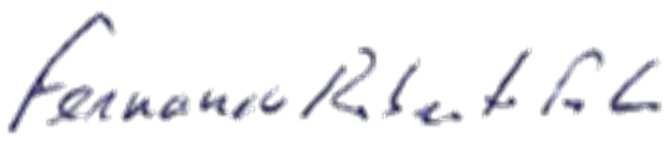 Fernando Roberto